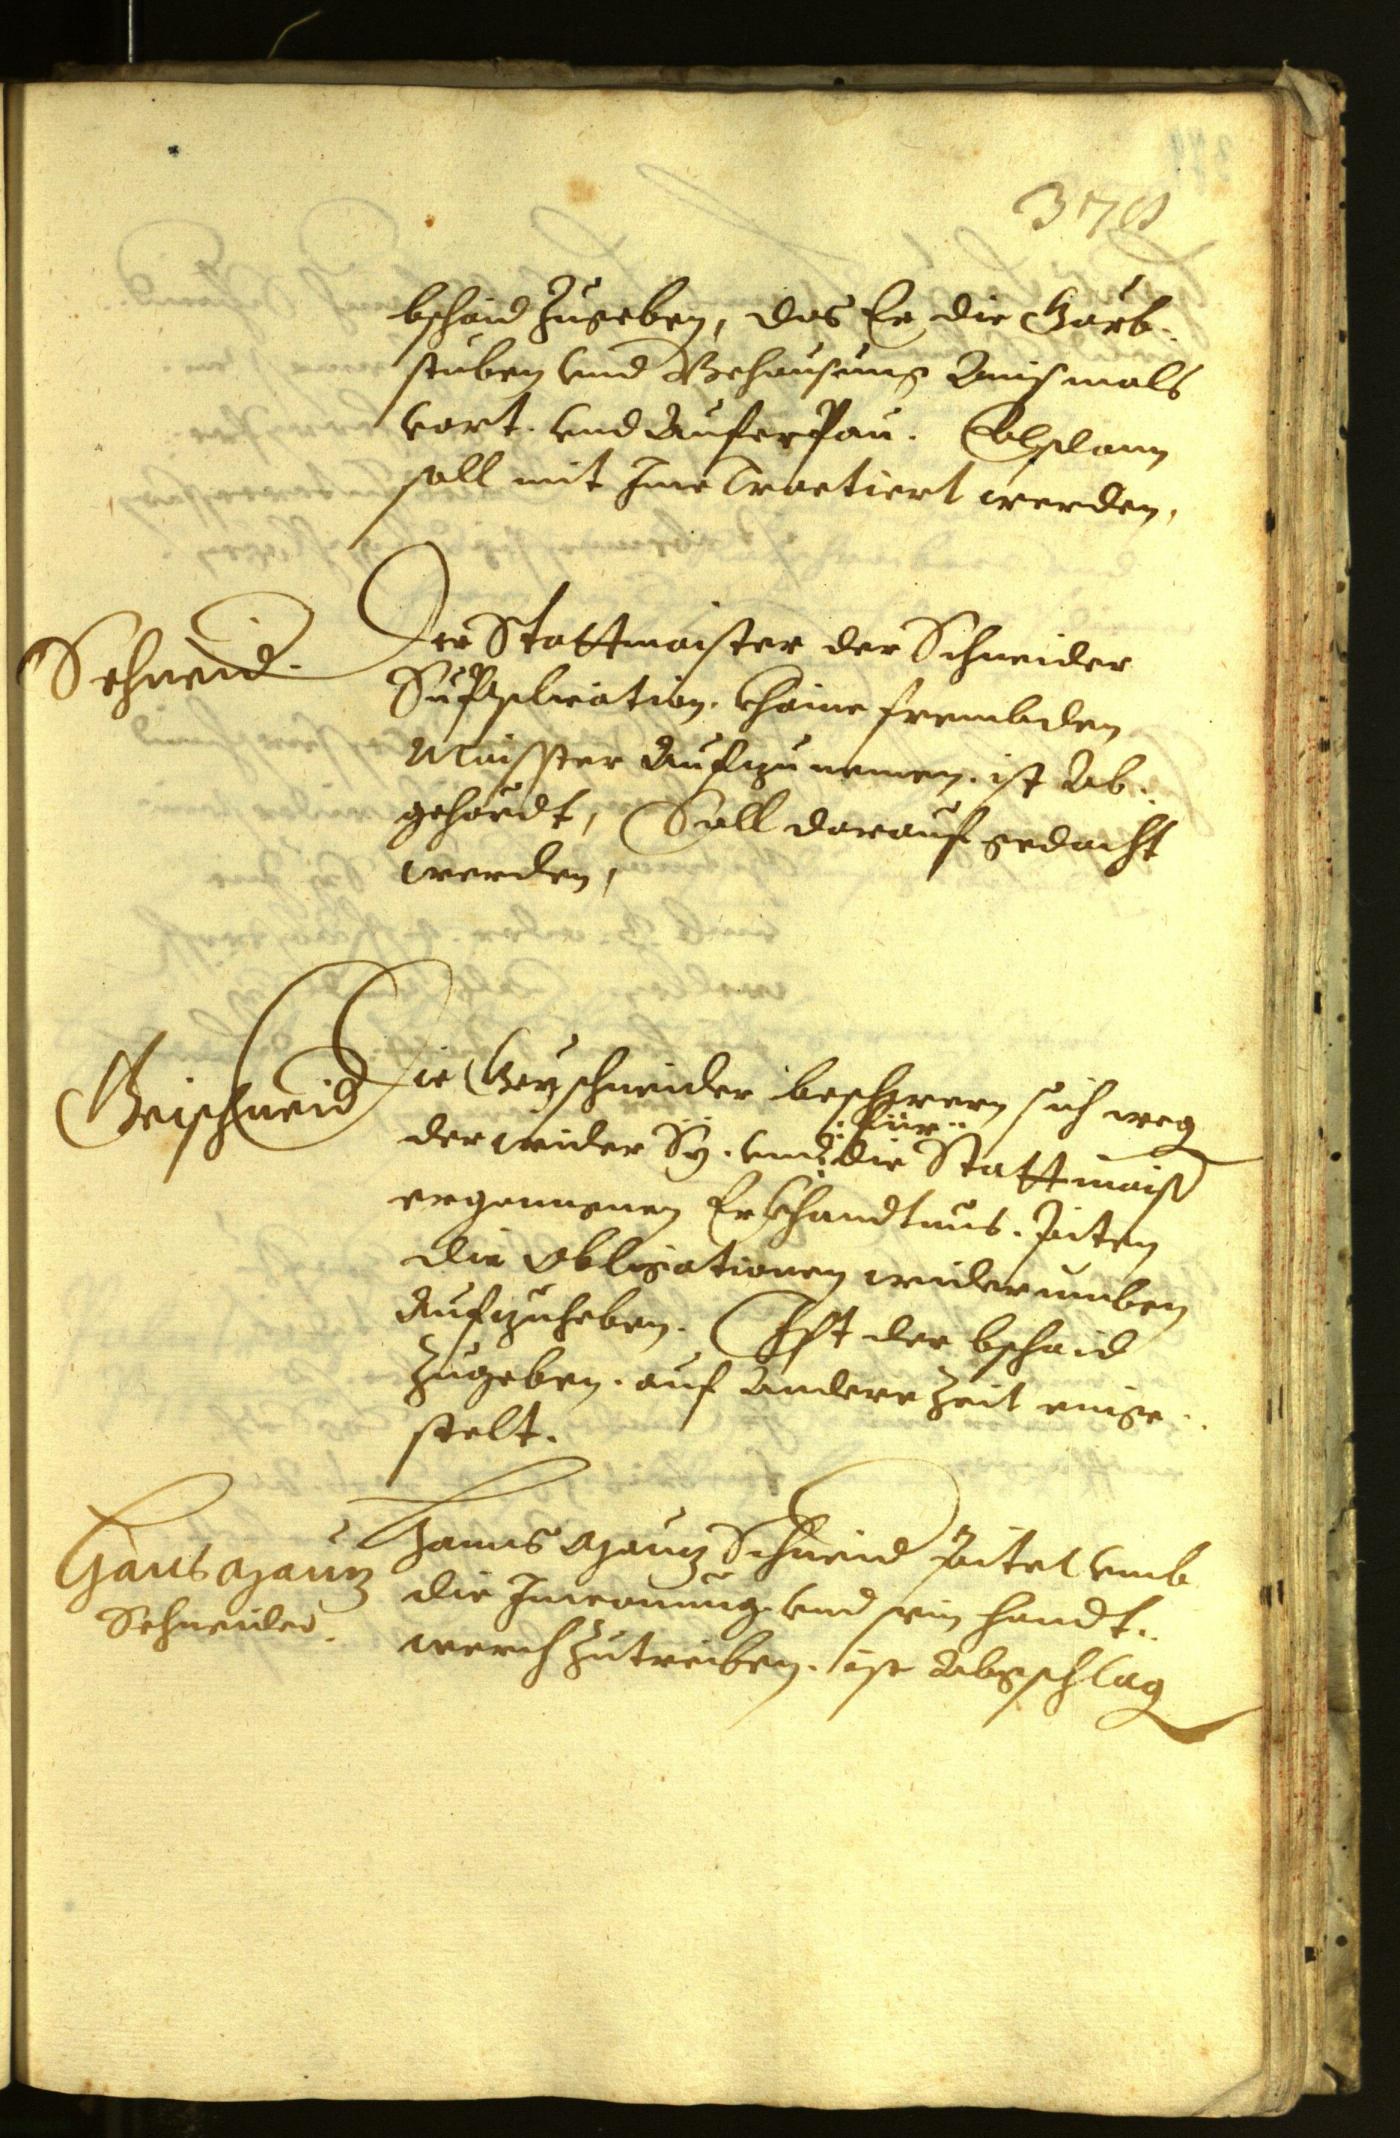 bschaid Zugeben, das Er die Garb-
stuben vnd Behausung Ainsmals
vort. vnd Auserpau. Alsdann
soll mit Ime Tractiert werden,
Schneid.
Der Stattmaister der Schneider
Supplication. khaine frembden
Maister Aufzunemen. ist Ab-
gehördt, Soll darauf gedacht
werden,
Geischneid
Die Geyschneider beschweren sich weg
:für:
der wider Sy. vnd die Stattmaist
ergangnen Erkhandtnus. Piten
die Obligationen widerumben
Aufzuheben. Ist der bschaid
Zugeben. auf andere Zeit einge-
stelt.
Hanns Schneid Pitet vmb
Hans
Schneider.
die Inwonung vnd sein handt-
werch Zutreiben. ist Abgschlag